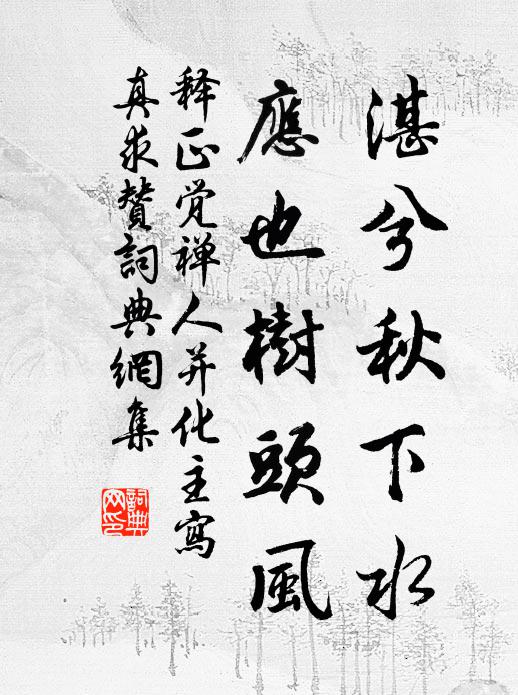 湛兮秋下水
應也樹頭風
释正觉禅人并化主寫
真求贊詞典網集
詞典网印